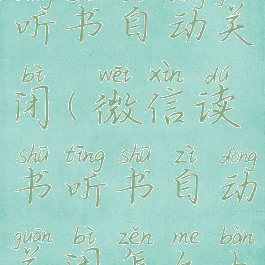 听书自动关
bì wēi xìn dú
闭(微信读
shū tīng shū zì dòng
书听书自动
guān bì zěn me bàn